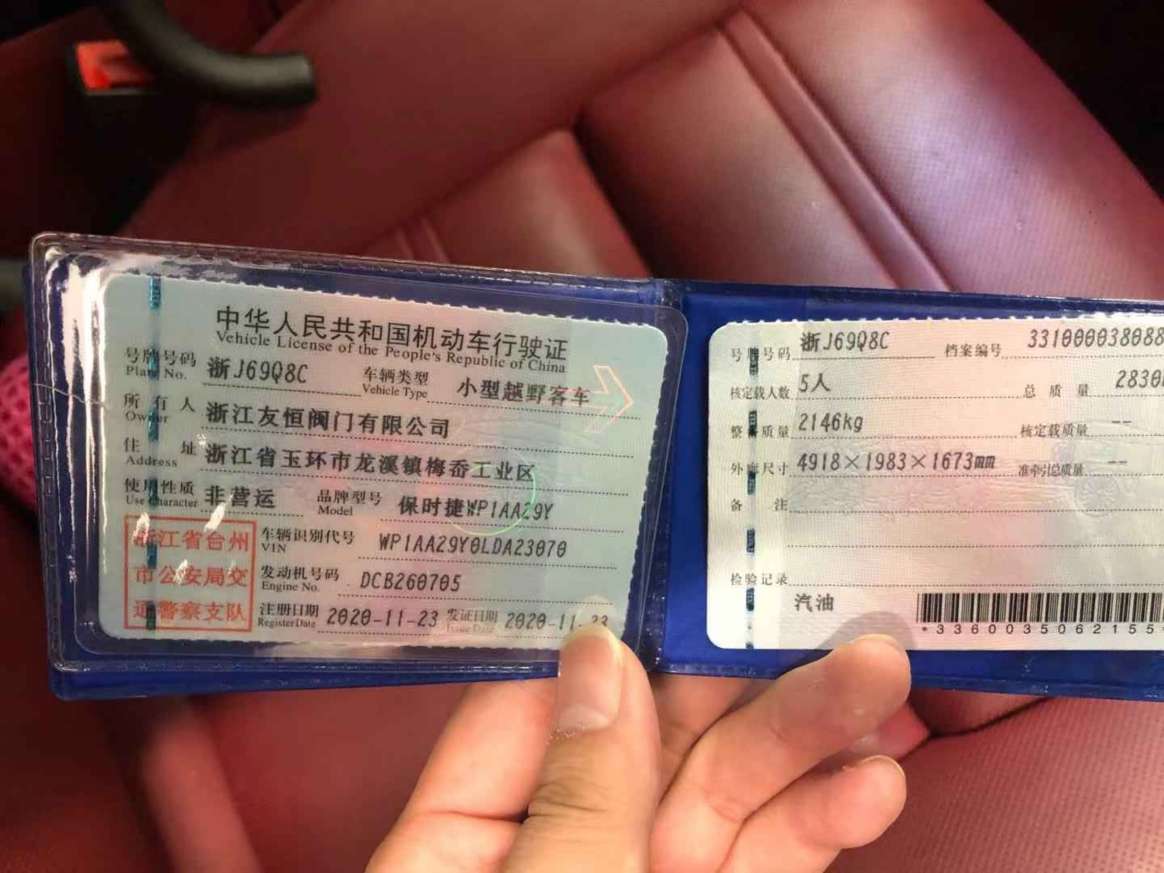 中华人民共和国机动车行驶证
Vehicle License of the People's Republic of China
号牌号码 浙J69Q8C 车辆类型 小型越野客车
Plate No. Vehicle Type
所有人 浙江友恒阀门有限公司
Owner
住址 浙江省玉环市龙溪镇梅岙工业区
Address
使用性质 非营运 品牌型号 保时捷WP1AA29Y
Use Character Model
浙江省台州
市公安局交
通警察支队
车辆识别代号 WP1AA29Y0LDA23070
VIN
发动机号码 DCB260705
Engine No.
注册日期 2020-11-23 发证日期 2020-11-23
Register Date Issue Date
号牌号码 浙J69Q8C 档案编号 331000038088
核定载人数 5人 总质量 2830
整备质量 2146kg 核定载质量 --
外廓尺寸 4918×1983×1673mm 准牵引总质量 --
备注
检验记录
汽油
*3360035062155